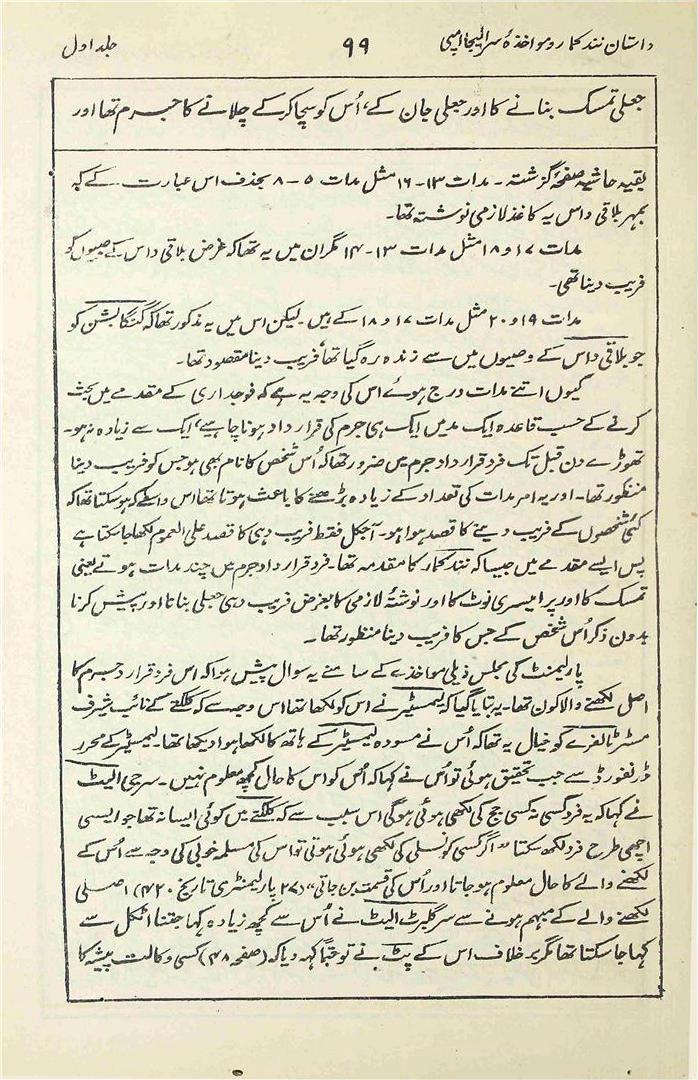 داستان نند کمار و مواخذۂ سر الیجا امپی ۹۹ جلد اول
جعلی تمسک بنانے کا اور جعلی جان کے، اُس کو سچا کر کے چلانے کا جرم تھا اور
بقیہ حاشیہ صفحۂ گزشتہ ۔ مدات ۱۳-۱۶ مثل مدات ۵-۸ بحذف اس عبارت کے کہ
بمہر بلاقی داس یہ کاغذ لازمی نوشتہ تھا۔
مدات ۱۷ و ۱۸ مثل مدات ۱۳-۱۴ مگر ان میں یہ تھا کہ غرض بلاقی داس کے وصیوں کو
فریب دینا تھی۔
مدات ۱۹ و ۲۰ مثل مدات ۱۷ و ۱۸ کے ہیں۔ لیکن اس میں یہ مذکور تھا کہ گنگا بشن کو
جو بلاقی داس کے وصیوں میں سے زندہ رہ گیا تھا فریب دینا مقصود تھا۔
کیوں اتنے مدات درج ہوئے اس کی وجہ یہ ہے کہ فوجداری کے مقدمے میں بحث
کرنے کے حسب قاعدہ ایک مد میں ایک ہی جرم کی قرار داد ہونا چاہیے، ایک سے زیادہ نہ ہو۔
تھوڑے دن قبل تک فرد قرار داد جرم میں ضرور تھا کہ اُس شخص کا نام بھی ہو جس کو فریب دینا
منظور تھا۔ اور یہ امر مدات کی تعداد کے زیادہ بڑھنے کا باعث ہوتا تھا اس واسطے کہ ہو سکتا تھا کہ
کئی شخصوں کے فریب دینے کا قصد ہوا ہو۔ آجکل فقط فریب دہی کا قصد علی العموم لکھا جا سکتا ہے
پس ایسے مقدمے میں جیسا کہ نند کمار کا مقدمہ تھا۔ فرد قرار داد جرم میں چند مدات ہوتے یعنی
تمسک کا اور پرامیسری نوٹ کا اور نوشتۂ لازمی کا بغرض فریب دہی جعلی بنانا اور پیش کرنا
بدون ذکر اُس شخص کے جس کا فریب دینا منظور تھا۔
پارلیمنٹ کی مجلس ذیلی مواخذے کے سامنے یہ سوال پیش ہوا کہ اس فرد قرار داد جرم کا
اصل لکھنے والا کون تھا۔ یہ بتایا گیا کہ لیمسٹیر نے اس کو لکھا تھا اس وجہ سے کہ کلکتے کے نائب شیرف
مسٹر ٹالفرے کو خیال یہ تھا کہ اُس نے مسودہ لیمسٹیر کے ہاتھ کا لکھا ہوا دیکھا تھا۔ لیمسٹیر کے محرر
ڈرنفورڈ سے جب تحقیق ہوئی تو اُس نے کہا کہ اُس کو اس کا حال کچھ معلوم نہیں۔ سر جی الیٹ
نے کہا کہ یہ فرد کسی نہ کسی جج کی لکھی ہوئی ہوگی اس سبب سے کہ کلکتے میں کوئی ایسا نہ تھا جو ایسی
اچھی طرح فرد لکھ سکتا "اگر کسی کونسلی کی لکھی ہوئی ہوتی تو اس کی مسلمہ خوبی کی وجہ سے اُس کے
لکھنے والے کا حال معلوم ہو جاتا اور اُس کی قسمت بن جاتی" (۲۷ پارلیمنٹری تاریخ ۴۲۰) اصلی
لکھنے والے کے مبہم ہونے سے سر گلبرٹ الیٹ نے اُس سے کچھ زیادہ کہا جتنا اٹکل سے
کہا جا سکتا تھا مگر بر خلاف اس کے پٹ نے کہہ دیا کہ (صفحہ ۴۸) کسی وکالت پیشہ کا